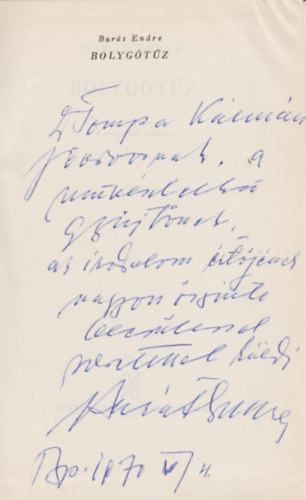 Barát Endre
BOLYGÓTŰZ
Dr Tompa Kálmán
főorvosnak, a
gyűjtőnek,
az irodalom értőjének
nagyon őszinte
becsüléssel
szeretettel küldi
Barát Endre
Bp. 1970 V/4.